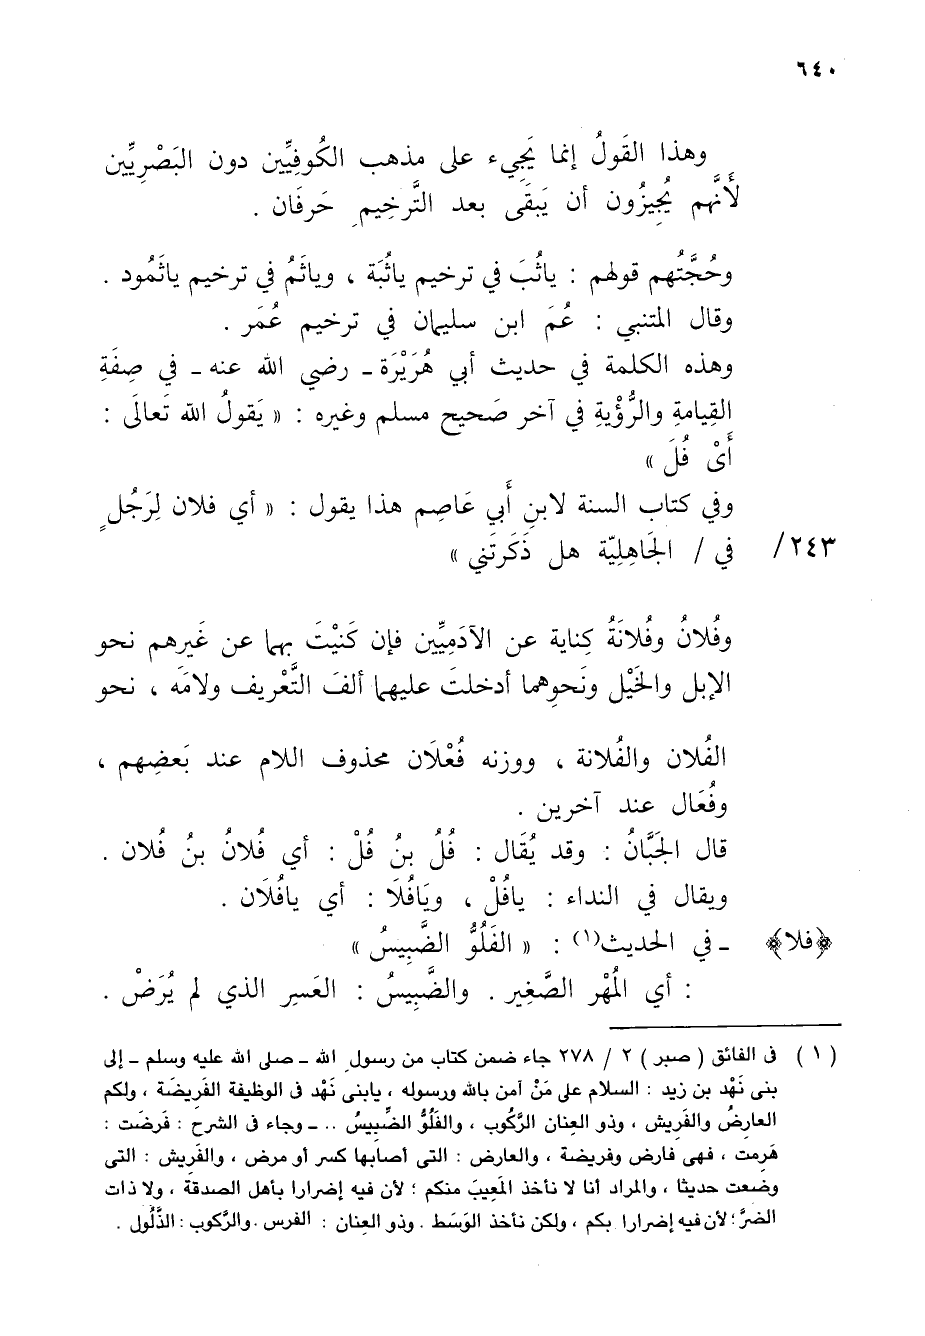 ٦٤٠
وهذا القَولُ إنما يَجِيء على مذهب الكُوفِيِّين دون البَصْرِيِّين
لأَنَّهم يُجِيزُون أن يَبقَى بعد التَّرخِيمِ حَرفَان .
وحُجَّتُهم قولهم : ياثُبَ في ترخيم ياثُبَة ، وياثَمُ في ترخيم ياثَمُود .
وقال المتنبي : عُمَ ابن سليمان في ترخيم عُمَر .
وهذه الكلمة في حديث أبي هُرَيْرَة ـ رضي الله عنه ـ في صِفَةِ
القِيامةِ والرُّؤْيةِ في آخر صَحيح مسلم وغيره : « يَقولُ الله تَعالَى :
أَىْ فُلَ »
وفي كتاب السنة لابنِ أَبي عَاصِم هذا يقول : « أي فلان لِرَجُلٍ
٢٤٣/ في / الجَاهِلِيّة هل ذَكَرتَني »
وفُلانُ وفُلانَةُ كِناية عن الآدَمِيِّين فإن كَنَيْتَ بهما عن غَيرهم نحو
الإبل والخَيْل ونَحوِهما أدخلتَ عليهما ألفَ التَّعْريف ولامَه ، نحو
الفُلان والفُلانة ، ووزنه فُعْلَان محذوف اللام عند بَعضِهم ،
وفُعَال عند آخرين .
قال الجَبَّانُ : وقد يُقَال : فُلُ بنُ فُلْ : أي فُلانُ بنُ فُلان .
ويقال في النداء : يافُلْ ، ويَافُلَا : أي يافُلَان .
﴿فلا﴾ ـ في الحديث(١) : « الفَلُوُّ الضَّبِيسُ »
: أي المُهْر الصَّغِير . والضَّبِيسُ : العَسِر الذي لم يُرَضْ .
( ١ ) فى الفائق ( صبر ) ٢ / ٢٧٨ جاء ضمن كتاب من رسولِ الله ـ صلى الله عليه وسلم ـ إلى
بنى نَهْد بن زيد : السلام على مَنْ آمن بالله ورسوله ، يابنى نَهْد فى الوظيفة الفَريضَة ، ولكم
العارضُ والفَريش ، وذو العِنان الرَّكُوب ، والفَلُوُّ الضَّبِيسُ .. ـ وجاء فى الشرح : فَرضَت :
هَرِمت ، فهى فارض وفريضة ، والعارض : التى أصابها كسر أو مرض ، والفَريش : التى
وضعت حديثا ، والمراد أنا لا نأخذ المَعِيبَ منكم ؛ لأن فيه إضرارا بأهل الصدقة ، ولا ذات
الضرّ؛ لأن فيه إضرارا بكم ، ولكن نأخذ الوَسَط . وذو العِنان : الفرس . والرَّكوب : الذَّلُول .